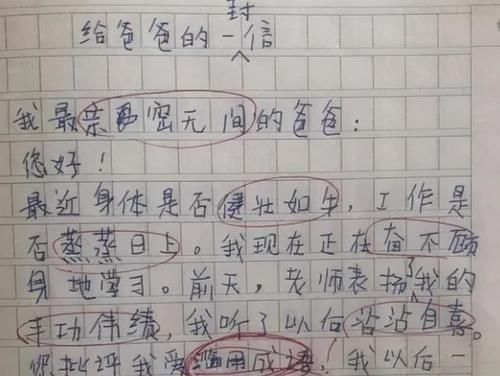 给爸爸的一封信
我最亲密无间的爸爸：
您好！
最近身体是否健壮如牛，工作是
否蒸蒸日上。我现在正在奋不顾
身地学习。前天，老师表扬了我的
丰功伟绩，我听了以后沾沾自喜。
您批评我爱滥用成语！我以后一